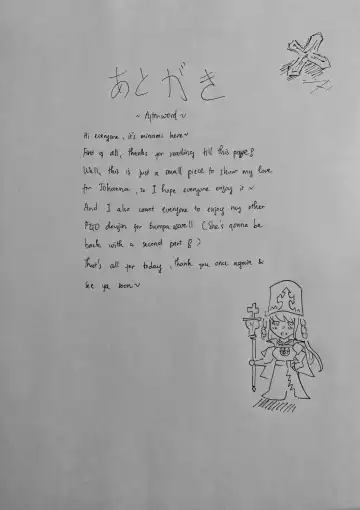 あとがき
~ Afterword ~
Hi everyone, it's minami here~
First of all, thanks for reading till this page!
Well, this is just a small piece to show my love
for Johanna, so I hope everyone enjoy it ~
And I also want everyone to enjoy my other
doujin for as well (She's gonna be
back with a second part !)
That's all for today, thank you once again &
see ya soon~